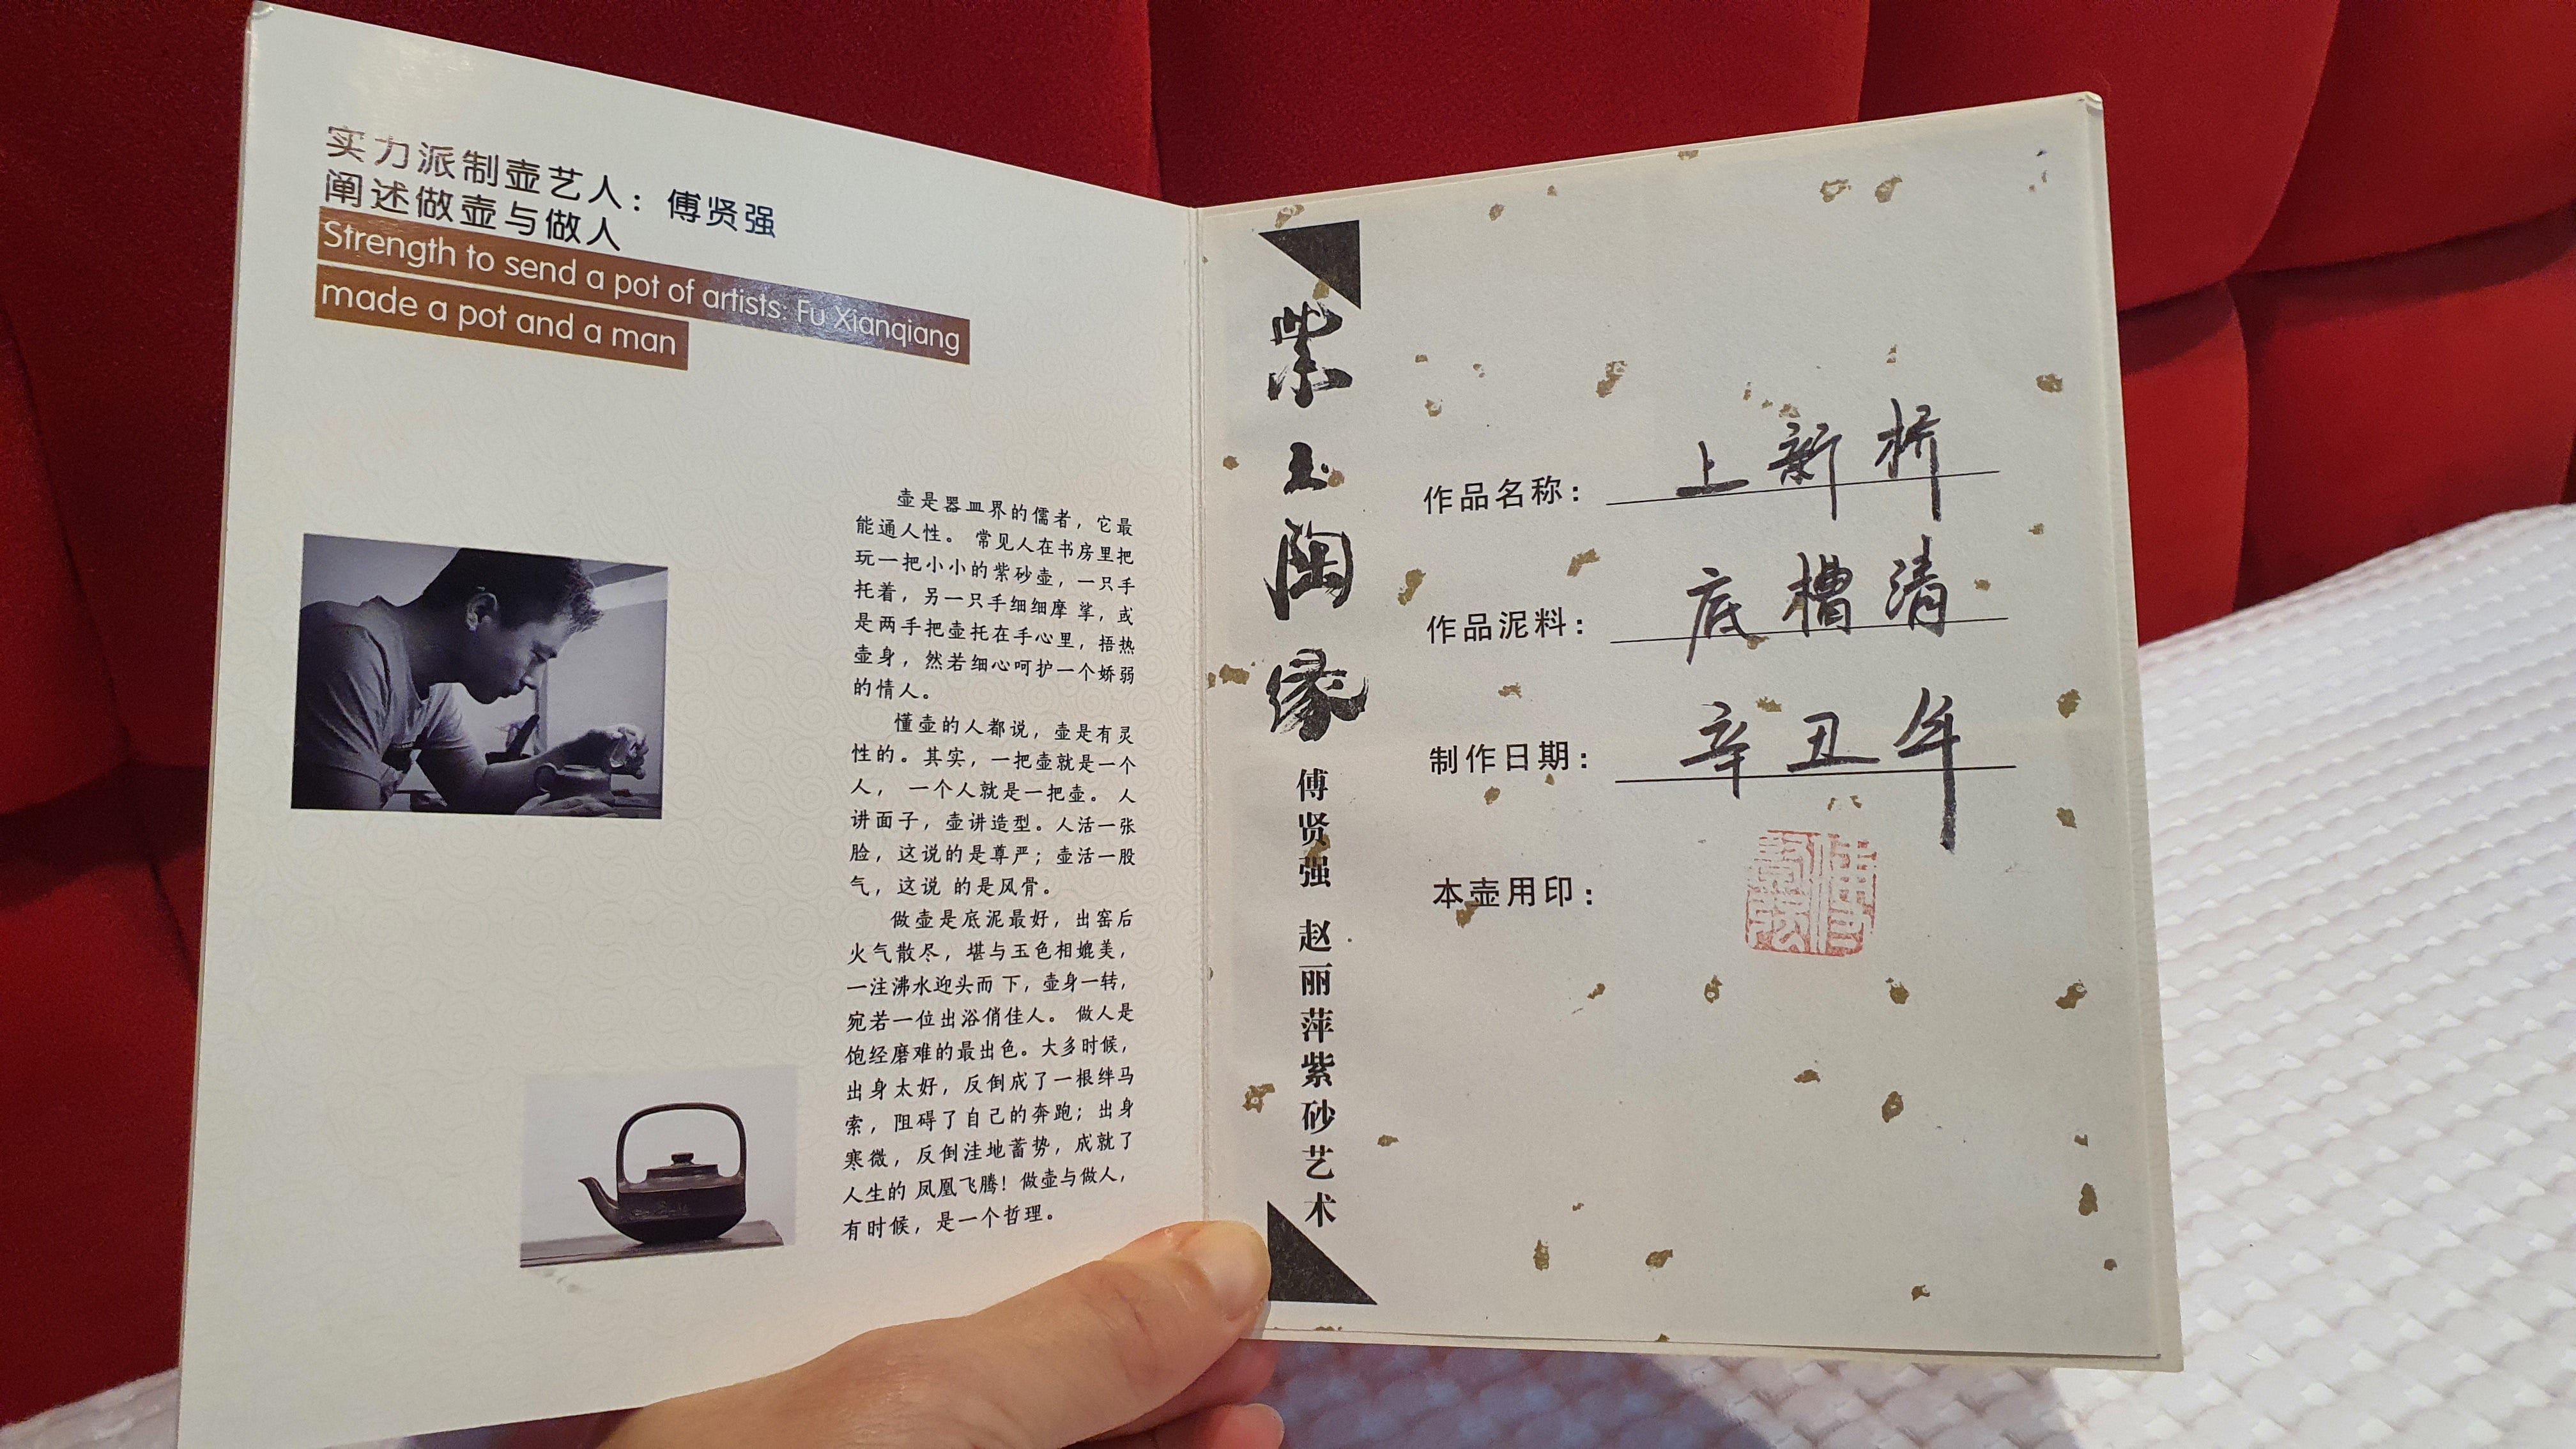 实力派制壶艺人：傅贤强
阐述做壶与做人
Strength to send a pot of artists: Fu Xianqiang
made a pot and a man
壶是器皿界的儒者，它最
能通人性。 常见人在书房里把
玩一把小小的紫砂壶，一只手
托着，另一只手细细摩 挲，或
是两手把壶托在手心里，捂热
壶身，然若细心呵护一个娇弱
的情人。
懂壶的人都说，壶是有灵
性的。其实，一把壶就是一个
人， 一个人就是一把壶。 人
讲面子，壶讲造型。人活一张
脸，这说的是尊严；壶活一股
气，这说 的是风骨。
做壶是底泥最好，出窑后
火气散尽，堪与玉色相媲美，
一注沸水迎头而 下，壶身一转，
宛若一位出浴俏佳人。 做人是
饱经磨难的最出色。大多时候，
出身太好，反倒成了一根绊马
索，阻碍了自己的奔跑；出身
寒微，反倒洼地蓄势，成就了
人生的 凤凰飞腾！做壶与做人，
有时候，是一个哲理。
紫玉陶缘
傅贤强 赵丽萍紫砂艺术
作品名称： 上新桥
作品泥料： 底槽清
制作日期： 辛丑年
本壶用印： 傅贤强